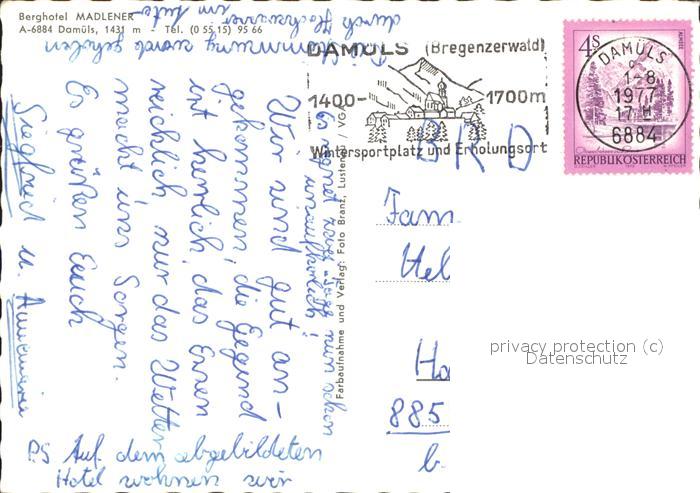 Berghotel MADLENER
A-6884 Damüls, 1431 m - Tel. (0 55 15) 95 66
Wir sind gut an-
gekommen, die Gegend
ist herrlich, das Essen
reichlich nur das Wetter
macht uns Sorgen.
Es grüßen Euch
Siegfried u. Annemarie
Es regnet zwei Tage nun schon
unaufhörlich!
PS Auf dem abgebildeten
Hotel wohnen wir
Stimmung wurde gehoben
durch
Farbaufnahme und Verlag: Foto Branz, Lustenau / VG
DAMÜLS (Bregenzerwald)
1400- 1700m
Wintersportplatz und Erholungsort
4S
DAMÜLS
1-8
1977
17H
6884
REPUBLIK ÖSTERREICH
BRD
Fam.
Hel
Ho
885
b.
privacy protection (c)
Datenschutz